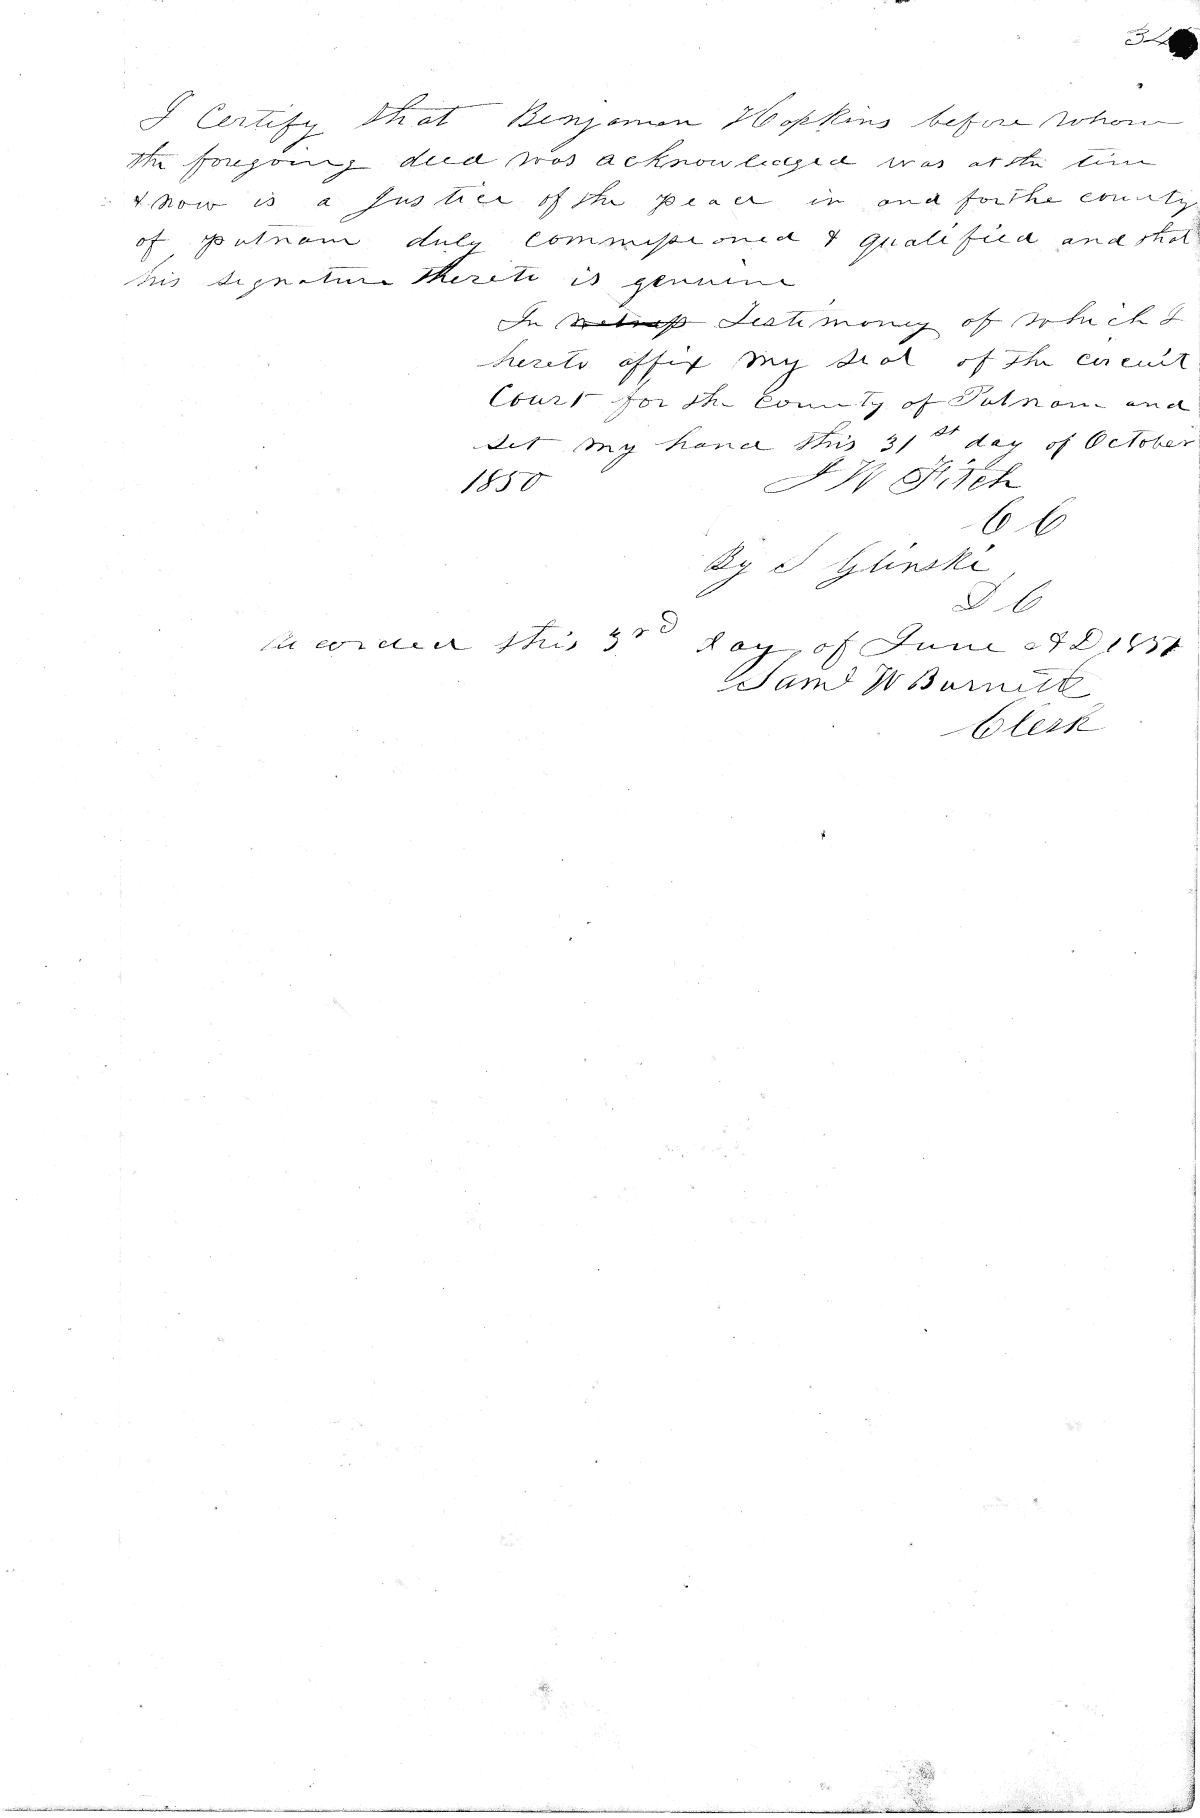 34
I Certify that Benjaman Hopkins before whom
the foregoing deed was acknowledged was at the time
& now is a Justice of the peace in and for the county
of putnam duly commissioned & qualified and that
his signature thereto is genuine
In witness Testimoney of which I
hereto affix my seal of the circuit
Court for the county of Putnam and
set my hand this 31st day of October
1850 J W Fitch
C C
By S Glinski
D C
Recorded this 3rd day of June AD 1851
Saml W Burnett
Clerk